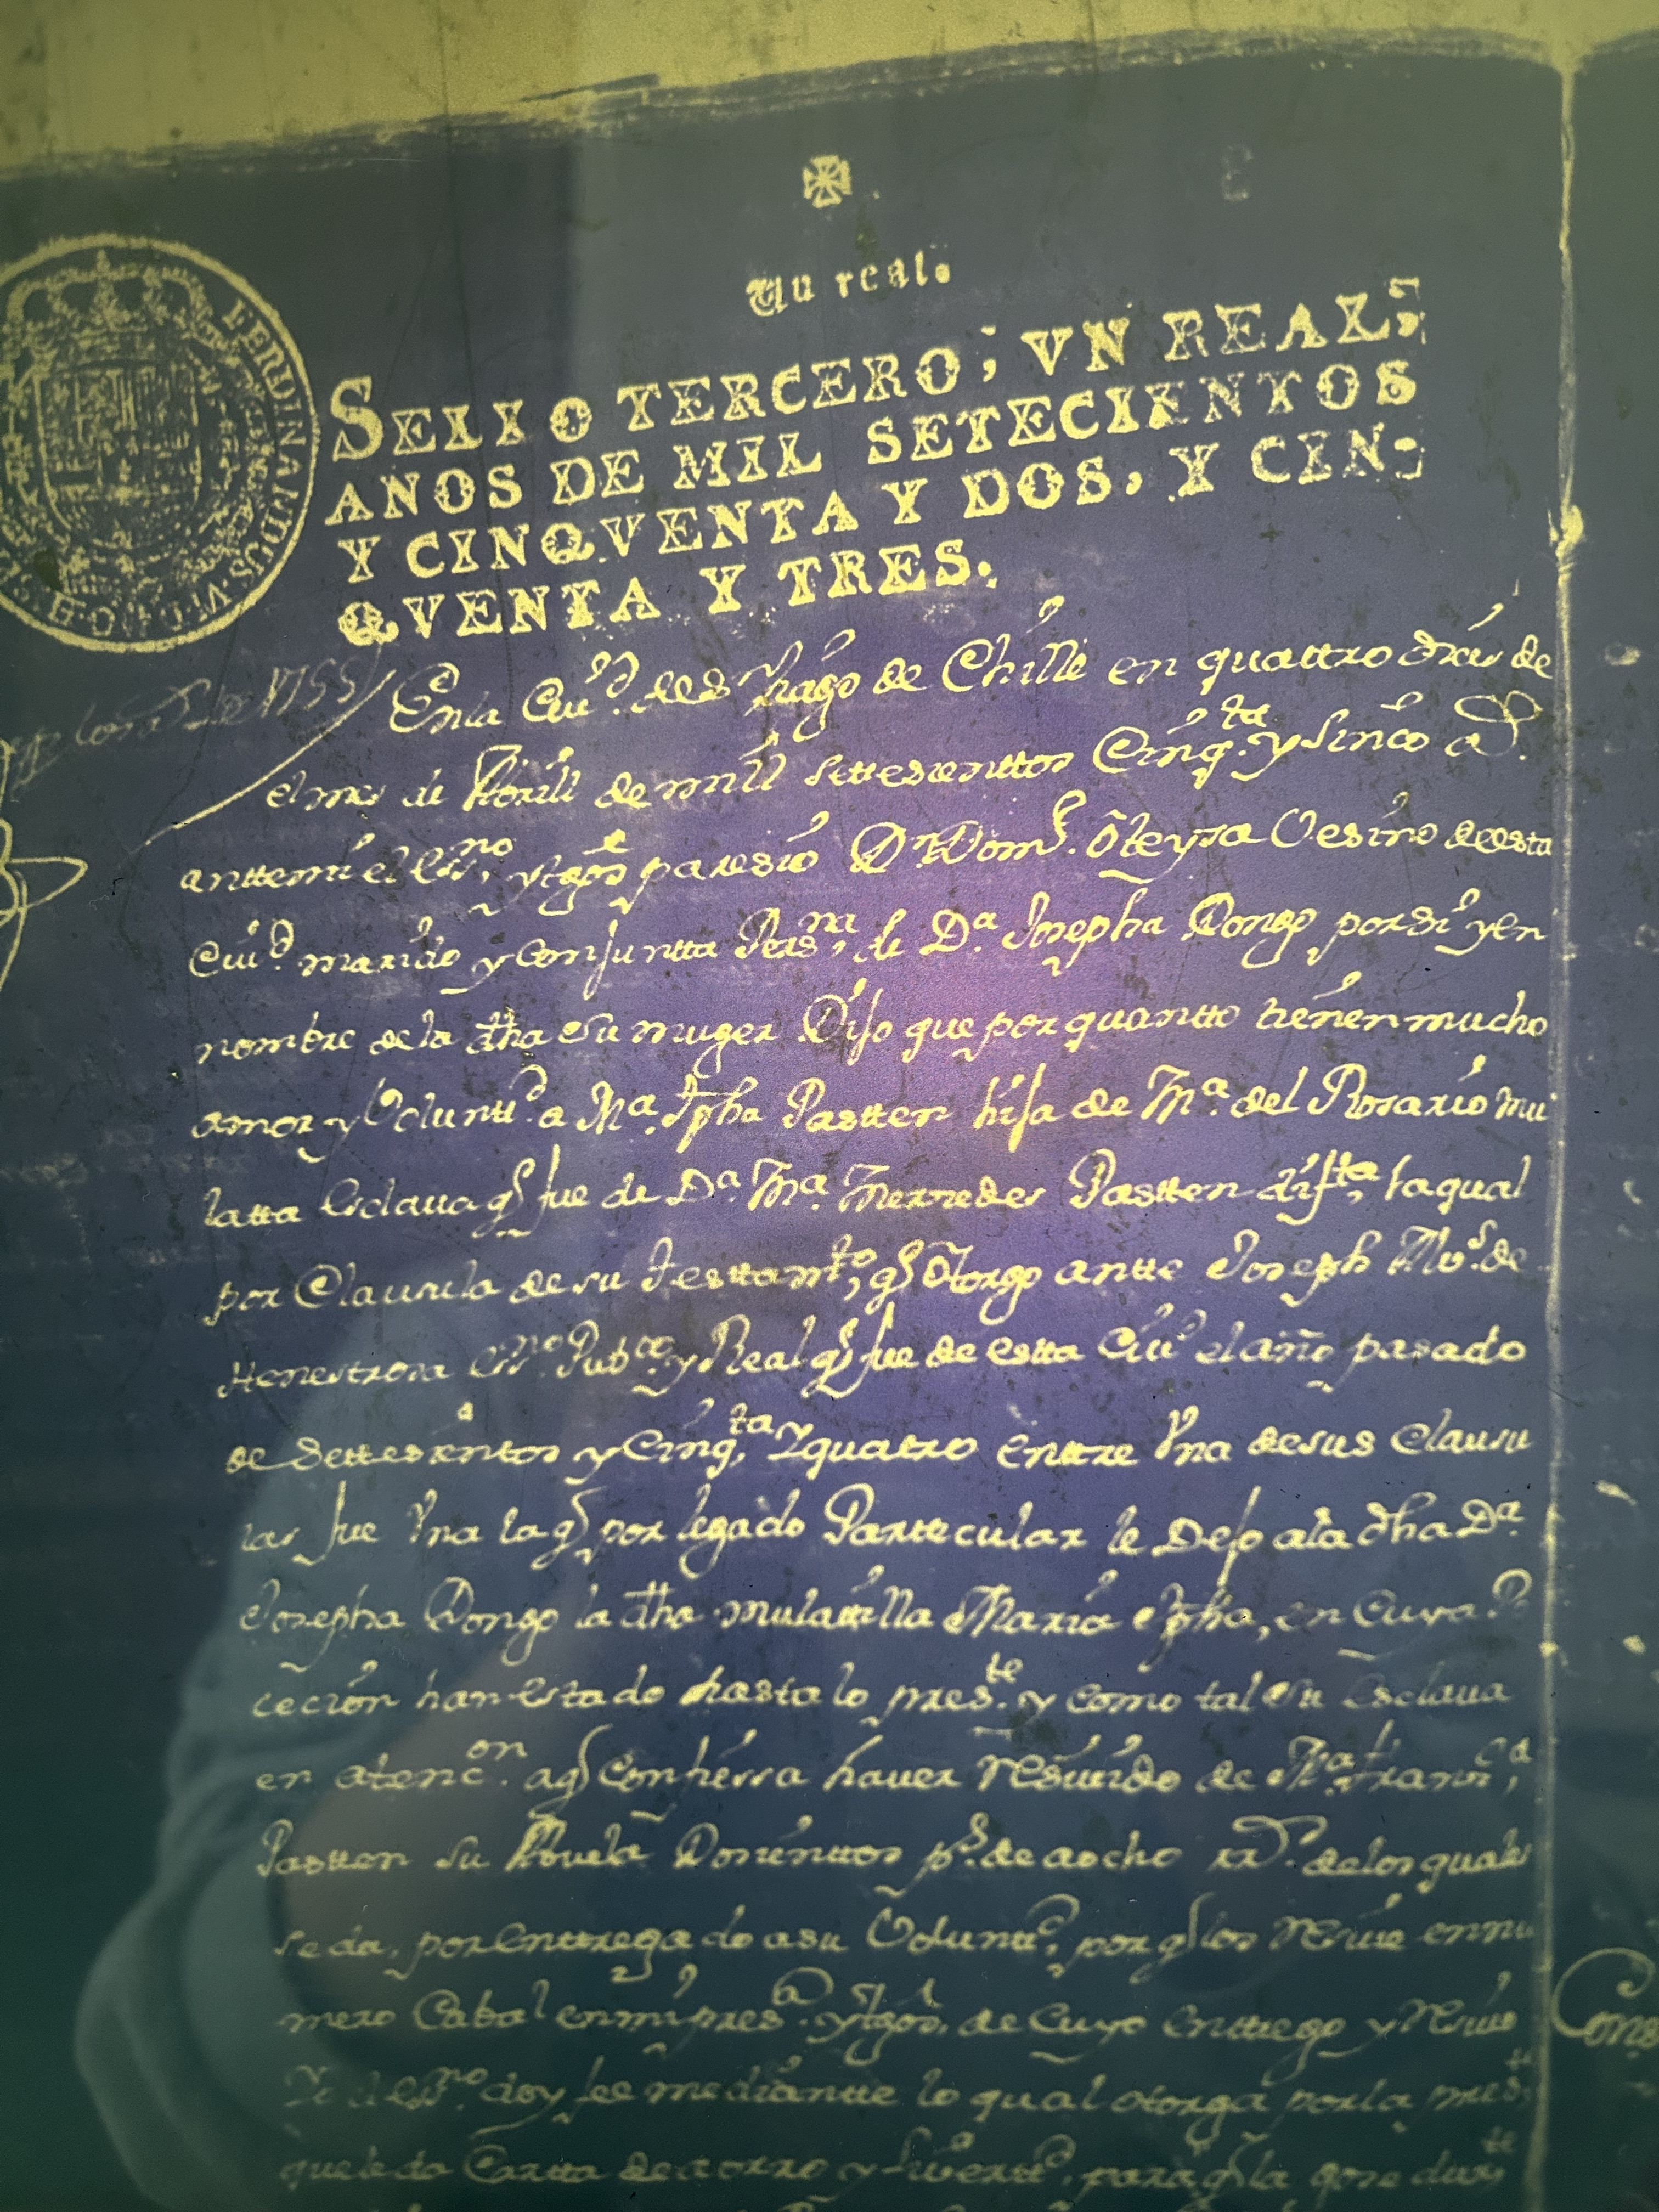 Un real.
FERDINANDUS·VI·D·G·
SELLO TERCERO, VN REAL,
AÑOS DE MIL SETECIENTOS
Y CINQVENTA Y DOS, Y CIN-
QVENTA Y TRES.
de 1755
En la Ciud. de Santhiago de Chille en quattro dias de
el mes de Abrili de mill settesienttos Cinqta. y sinco a.s
anttemi el essno. y tgos paresio Dn. Domo. Oleysa Vesino de esta
Ciud. marido y Conjuntta Persna. de Da. Josepha Dongo por si y en
nombre de la dha su muger Dijo que por quantto tienen mucho
amor y Voluntd. a Ma. Jpha Pastten hija de Ma. del Rosario mu
latta Esclaua q fue de Da. Ma. Mersedes Pastten difta. la qual
por Clausula de su Testtamto. q Otorgo antte Joseph Alvs. de
Henestrosa essno. Pubco. y Real q fue de esta Ciud. el año pasado
de settesientos y Cinqta. y quatro enttre Vna de sus Clausu
las fue Vna la q por legado Partticular le Dejo a la dha Da.
Josepha Dongo la dha mulattilla Maria Jpha, en Cuya Po
cecion han estado hasta lo preste. y como tal su Esclaua
en atencon. a q Confiessa hauer resiuido de Ma. Franca.
Pastten su Abuela Dosienttos ps. de a ocho rrs. de los quales
se da por enttregado a su Voluntd. por q los resiue en nu
mero Cabal en mi presa. y tgos. de Cuyo enttrego y resiuo
Yo el essno. doy fee mediantte lo qual otorga por la preste.
que le da Cartta de aorro y liuerttd. para q la gose durte
Cons